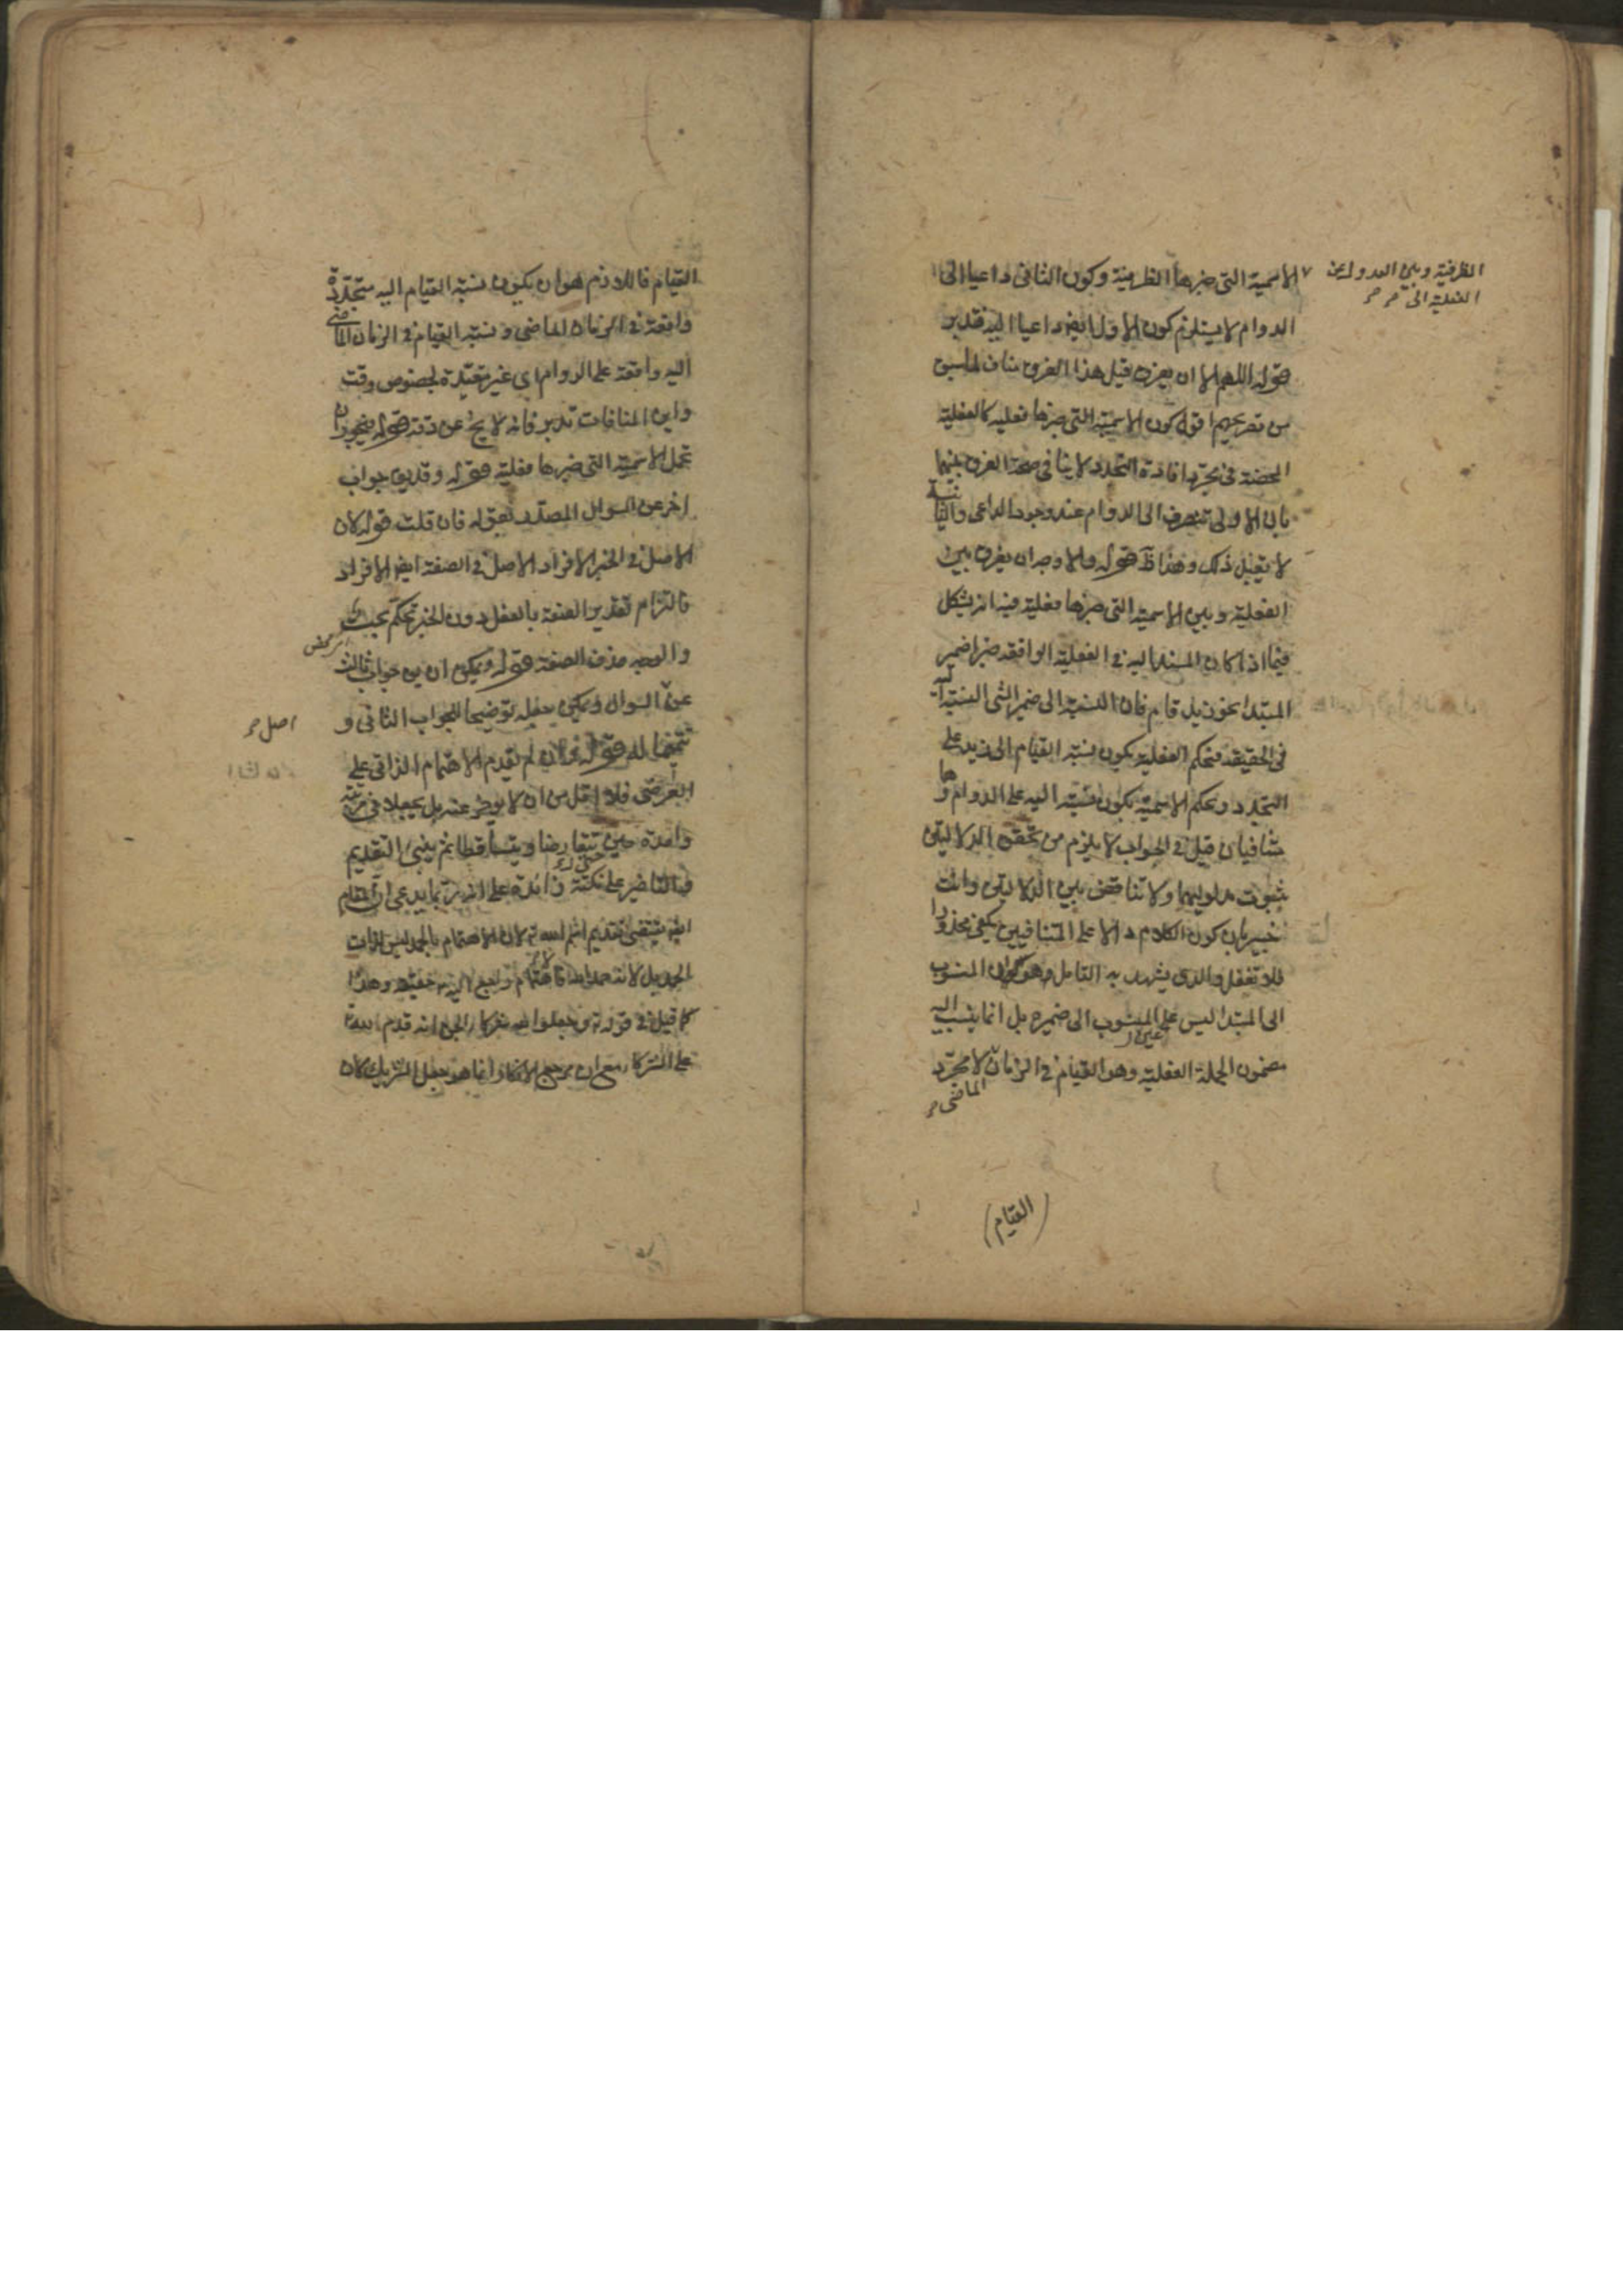 الظرفية وبين العدول عن
الفعلية الى
الاسمية التى خبرها الظرفية وكون الثانى داعيا الى
الدوام لا يستلزم كون الاول ايضا داعيا اليه فتدبر
قوله اللهم الا ان يفرق قيل هذا الفرق مناف لما سبق
من تصريحهم اقول كون الاسمية التى خبرها فعلية كالفعلية
المحضة فى مجرد افادة التجدد لا ينافى صحة الفرق بينهما
بان الاولى تنصرف الى الدوام عند وجود الداعى والثانية
لا يقبل ذلك وهذا قوله والاوجه ان يفرق بين
الفعلية وبين الاسمية التى خبرها فعلية فيه انه يشكل
فيما اذا كان المسند اليه فى الفعلية الواقعة خبرا ضمير
المبتدا نحو زيد قام فان النسبة الى ضمير الشئ النسبة اليه
فى الحقيقة فبحكم الفعلية يكون نسبة القيام الى زيد على
التجدد وبحكم الاسمية يكون نسبته اليه على الدوام وهما
متنافيان قيل فى الجواب لا يلزم من تحقق الدلالتين
ثبوت مدلوليهما ولا تناقض بين الدلالتين وانت
خبير بان كون الكلام دالا على المتنافيين يكفى محذورا
فلا تغفل والذى يشهد به التامل وهو ان المنسوب
الى المبتدا ليس عين المنسوب الى ضميره بل انما ينسب اليه
مضمون الجملة الفعلية وهو القيام فى الزمان الماضى لا مجرد
(القيام)
القيام فاللازم هو ان يكون نسبة القيام اليه متجددة
واقعة فى الزمان الماضى ونسبة القيام فى الزمان الماضى
اليه واقعة على الدوام اى غير مقيدة بخصوص وقت
واين المنافات تدبر فانه لا يخ عن دقة قوله فيجوز ان
تحمل الاسمية التى خبرها فعلية قوله وقد يق جواب
اخر عن السوال المصدر بقوله فان قلت قوله كان
الاصل فى الخبر الافراد الاصل فى الصفة ايضا الافراد
فالتزام تقدير الصفة بالفعل دون الخبر تحكم بحت
والوجه حذف الصفة قوله ويمكن ان يق جواب ثالث
عن السوال ويمكن جعله توضيحا للجواب الثانى و
اصل
تتميما له قوله فلان لم تقدم الاهتمام الذاتى على
العرضى فلا اقل من ان لا يوخر عنه بل يجعلا فى مرتبة
واحدة حتى يتعارضا ويتساقطا ثم يبنى التقديم
والتاخير على نكتة زائدة على انه ربما يدعى ان المقام
ايضا يقتضى تقديم اسم الله تع لان الاهتمام بالحمد ليس لذات
الحمد بل لانه حمد الله
كما قيل فى قوله تع وجعلوا لله شركاء الجن انه قدم لله
على الشركاء مع ان مرجع الانكار انما هو جعل الشريك كان